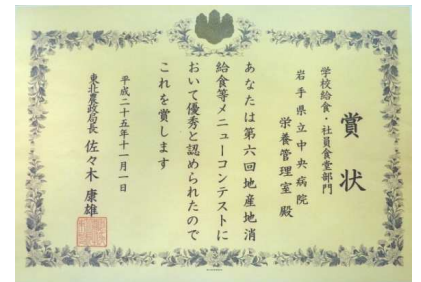 賞状
学校給食・社員食堂部門
岩手県立中央病院
栄養管理室 殿
あなたは第六回地産地消
給食等メニューコンテストに
おいて優秀と認められたので
これを賞します
平成二十五年十一月一日
東北農政局長 佐々木 康雄